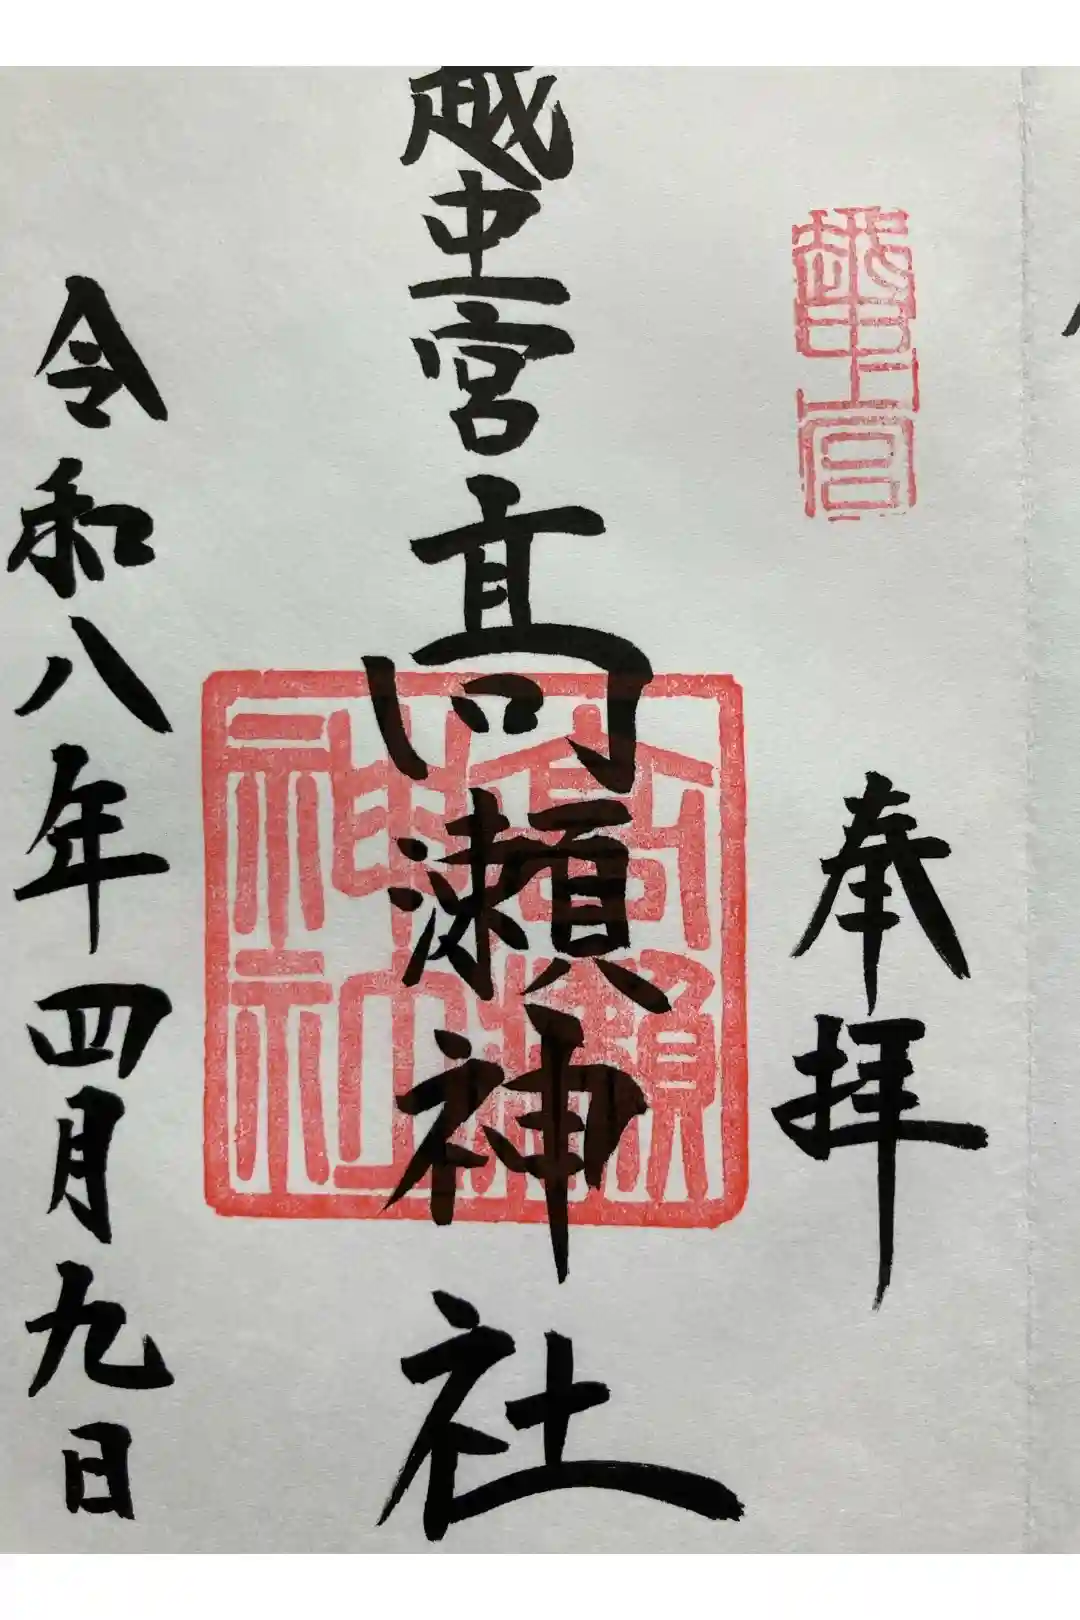 越中一宮
奉拝
越中一宮高瀬神社
高瀬神社
令和八年四月九日